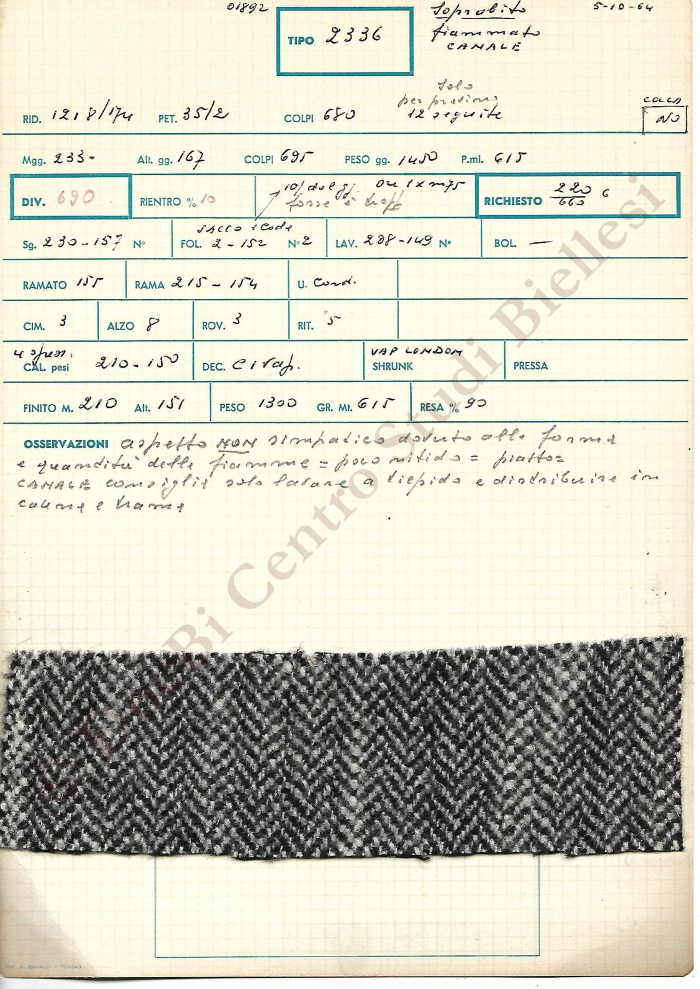 01892 Soprabito 5-10-64
TIPO 2336 fiammato
CANALE
Solo
per provino
12 seguite
RID. 1218/174 PET. 35/2 COLPI 680 NO
Mgg. 233- Alt. gg. 167 COLPI 695 PESO gg. 1450 P.ml. 615
DIV. 690 RIENTRO % 10 RICHIESTO 220/660
forse è
SACCO
Sg. 230-157 N° FOL. 2-152 N° 2 LAV. 208-149 N° BOL. —
RAMATO 155 RAMA 215-154 U. Cond.
CIM. 3 ALZO 8 ROV. 3 RIT. 5
CAL. pesi 210-150 DEC. VAP LONDON
SHRUNK PRESSA
FINITO M. 210 Alt. 151 PESO 1300 GR. Mt. 615 RESA % 90
OSSERVAZIONI aspetto NON simpatico dovuto alle forme
e quantità delle fiamme = poco nitido = piatto =
CANALE consiglia solo lavare a tiepido e distribuire in
catena e trama
© DocBi Centro Studi Biellesi